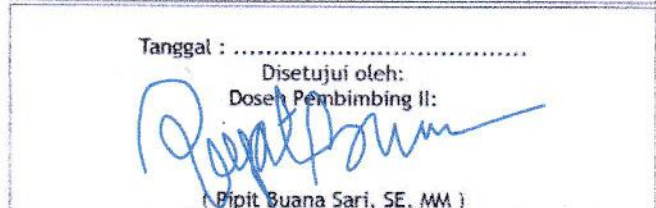 Tanggal : ....................................
Disetujui oleh:
Dosen Pembimbing II:
( Pipit Buana Sari, SE, MM )